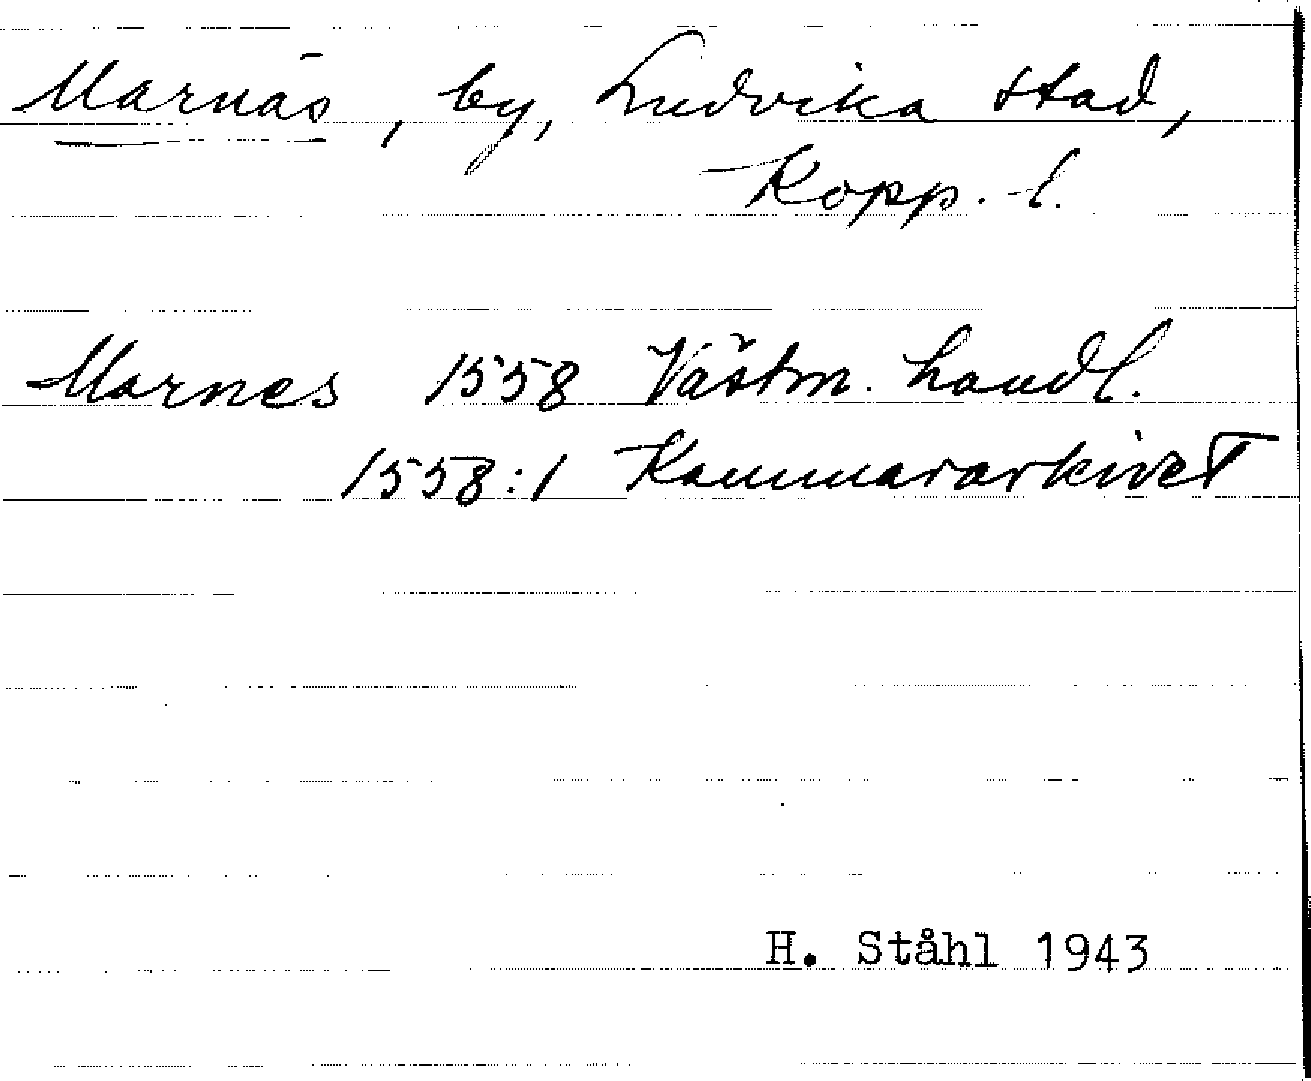 Marnäs, by, Ludvika stad,
Kopp. l.
Marnes 1558 Västm. handl.
1558:1 Kammararkivet
H. Ståhl 1943